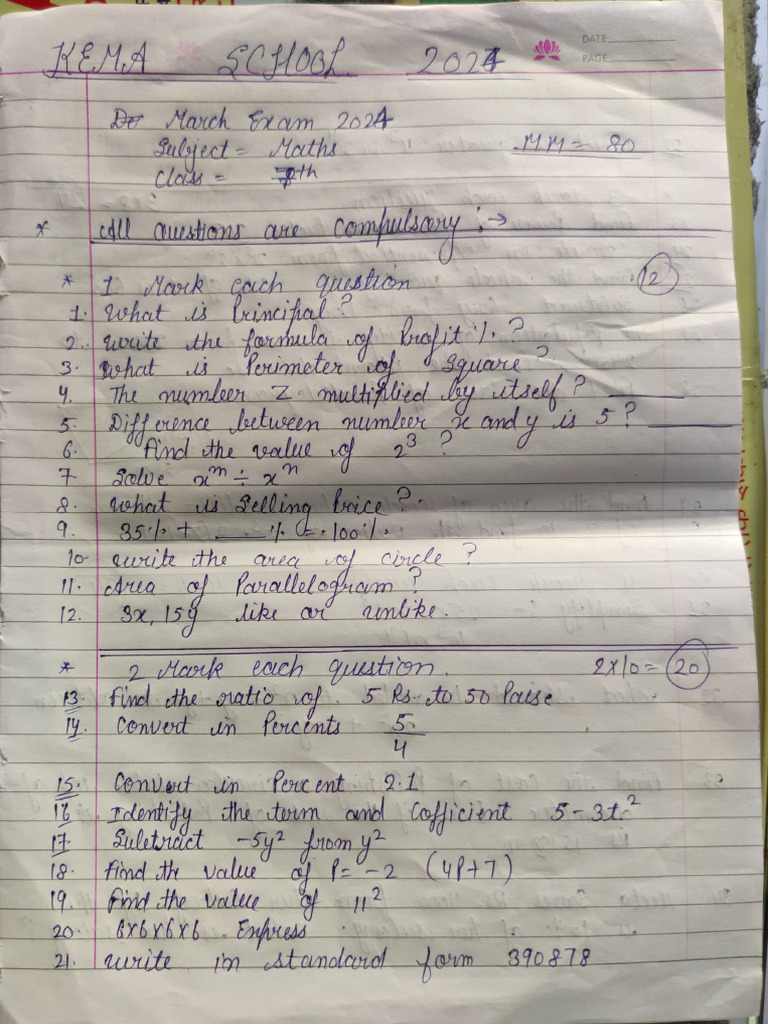 KEMA SCHOOL 2024
DATE
PAGE
March Exam 2024
Subject = Maths MM = 80
Class = 7th
* All Questions are Compulsory :→
* 1 Mark each question 12
1. What is Principal ?
2. Write the formula of Profit % ?
3. What is Perimeter of Square ?
4. The number Z multiplied by itself ? ____
5. Difference between number x and y is 5 ? ____
6. Find the value of 2³ ?
7 Solve xᵐ ÷ xⁿ
8. What is Selling Price ?
9. 35% + ____% = 100%
10 Write the area of circle ?
11. Area of Parallelogram ?
12. 3x, 15y like or unlike.
* 2 Mark each question. 2x10 = 20
13. Find the ratio of 5 Rs to 50 Paise
14. Convert in Percents 5/4
15. Convert in Percent 2.1
16 Identify the term and Cofficient 5 - 3t²
17 Subtract -5y² from y²
18. Find the value of P = -2 (4P+7)
19. Find the value of 11²
20. 6x6x6x6 Express
21. Write in standard form 390878